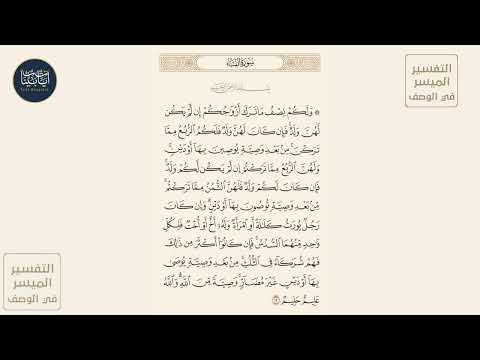 التفسير
الميسر
في الوصف
سورة النساء
بسم الله الرحمن الرحيم
۞ وَلَكُمْ نِصْفُ مَا تَرَكَ أَزْوَٰجُكُمْ إِن لَّمْ يَكُن
لَّهُنَّ وَلَدٌ ۚ فَإِن كَانَ لَهُنَّ وَلَدٌ فَلَكُمُ ٱلرُّبُعُ مِمَّا
تَرَكْنَ ۚ مِنۢ بَعْدِ وَصِيَّةٍ يُوصِينَ بِهَآ أَوْ دَيْنٍ ۚ
وَلَهُنَّ ٱلرُّبُعُ مِمَّا تَرَكْتُمْ إِن لَّمْ يَكُن لَّكُمْ وَلَدٌ ۚ
فَإِن كَانَ لَكُمْ وَلَدٌ فَلَهُنَّ ٱلثُّمُنُ مِمَّا تَرَكْتُم ۚ
مِّنۢ بَعْدِ وَصِيَّةٍ تُوصُونَ بِهَآ أَوْ دَيْنٍ ۗ وَإِن كَانَ
رَجُلٌ يُورَثُ كَلَٰلَةً أَوِ ٱمْرَأَةٌ وَلَهُۥٓ أَخٌ أَوْ أُخْتٌ فَلِكُلِّ
وَٰحِدٍ مِّنْهُمَا ٱلسُّدُسُ ۚ فَإِن كَانُوٓا۟ أَكْثَرَ مِن ذَٰلِكَ
فَهُمْ شُرَكَآءُ فِى ٱلثُّلُثِ ۚ مِنۢ بَعْدِ وَصِيَّةٍ يُوصَىٰ
بِهَآ أَوْ دَيْنٍ غَيْرَ مُضَآرٍّ ۚ وَصِيَّةً مِّنَ ٱللَّهِ ۗ وَٱللَّهُ
عَلِيمٌ حَلِيمٌ
التفسير
الميسر
في الوصف